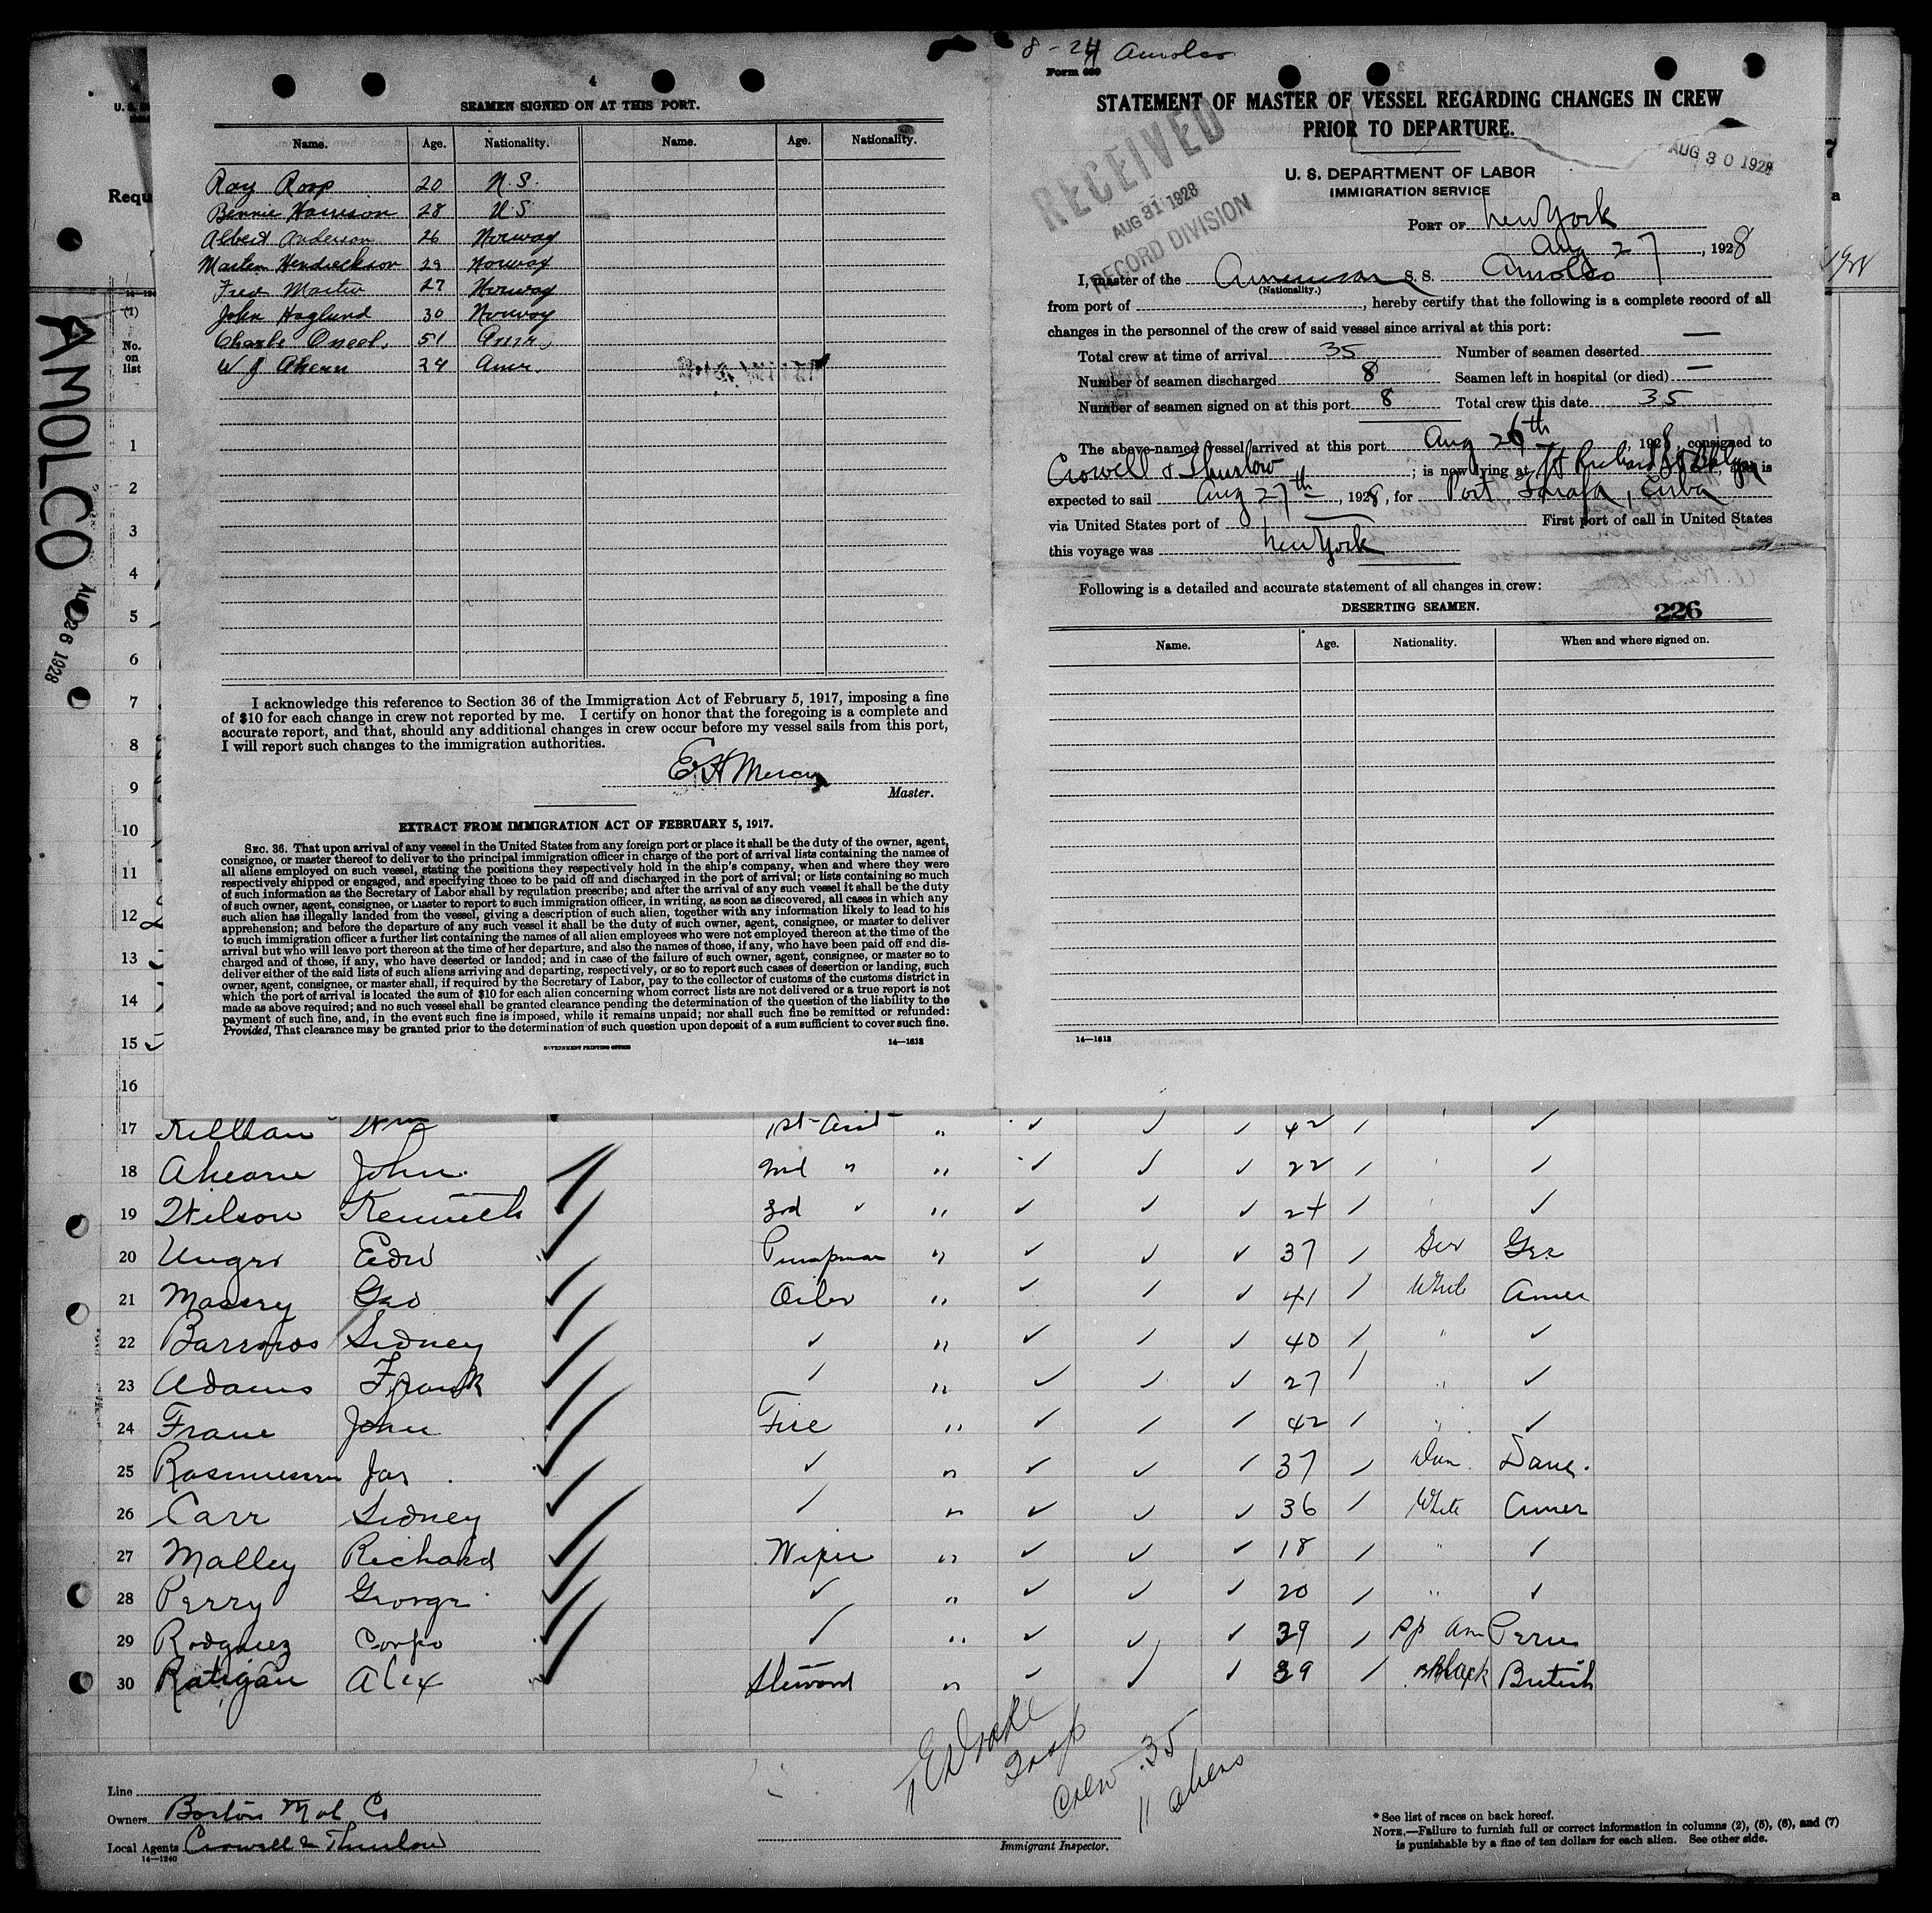 AMOLCO
AUG 26 1928
4
SEAMEN SIGNED ON AT THIS PORT.
Name. Age. Nationality. Name. Age. Nationality.
Ray Roop 20 U.S.
Bennie Harrison 28 U.S.
Albert Anderson 26 Norway
Marten Hendrickson 29 Norway
Fred Martin 27 Norway
John Haglund 30 Norway
Charle Oneel. 51 Amr.
W J Ahern 24 Amr.
I acknowledge this reference to Section 36 of the Immigration Act of February 5, 1917, imposing a fine
of $10 for each change in crew not reported by me. I certify on honor that the foregoing is a complete and
accurate report, and that, should any additional changes in crew occur before my vessel sails from this port,
I will report such changes to the immigration authorities.
E H Mercy
Master.
EXTRACT FROM IMMIGRATION ACT OF FEBRUARY 5, 1917.
SEC. 36. That upon arrival of any vessel in the United States from any foreign port or place it shall be the duty of the owner, agent,
consignee, or master thereof to deliver to the principal immigration officer in charge of the port of arrival lists containing the names of
all aliens employed on such vessel, stating the positions they respectively hold in the ship's company, when and where they were
respectively shipped or engaged, and specifying those to be paid off and discharged in the port of arrival; or lists containing so much
of such information as the Secretary of Labor shall by regulation prescribe; and after the arrival of any such vessel it shall be the duty
of such owner, agent, consignee, or master to report to such immigration officer, in writing, as soon as discovered, all cases in which any
such alien has illegally landed from the vessel, giving a description of such alien, together with any information likely to lead to his
apprehension; and before the departure of any such vessel it shall be the duty of such owner, agent, consignee, or master to deliver
to such immigration officer a further list containing the names of all alien employees who were not employed thereon at the time of the
arrival but who will leave port thereon at the time of her departure, and also the names of those, if any, who have been paid off and dis-
charged and of those, if any, who have deserted or landed; and in case of the failure of such owner, agent, consignee, or master so to
deliver either of the said lists of such aliens arriving and departing, respectively, or so to report such cases of desertion or landing, such
owner, agent, consignee, or master shall, if required by the Secretary of Labor, pay to the collector of customs of the customs district in
which the port of arrival is located the sum of $10 for each alien concerning whom correct lists are not delivered or a true report is not
made as above required; and no such vessel shall be granted clearance pending the determination of the question of the liability to the
payment of such fine, and, in the event such fine is imposed, while it remains unpaid; nor shall such fine be remitted or refunded:
Provided, That clearance may be granted prior to the determination of such question upon deposit of a sum sufficient to cover such fine.
GOVERNMENT PRINTING OFFICE 14—1613
8-24 Amolco
Form 689
STATEMENT OF MASTER OF VESSEL REGARDING CHANGES IN CREW
PRIOR TO DEPARTURE.
RECEIVED
AUG 31 1928
RECORD DIVISION
AUG 30 1928
U. S. DEPARTMENT OF LABOR
IMMIGRATION SERVICE
PORT OF New York
Aug 27, 1928
I, master of the American S. S. Amolco
(Nationality.)
from port of , hereby certify that the following is a complete record of all
changes in the personnel of the crew of said vessel since arrival at this port:
Total crew at time of arrival 35 Number of seamen deserted —
Number of seamen discharged 8 Seamen left in hospital (or died) —
Number of seamen signed on at this port 8 Total crew this date 35
The above-named vessel arrived at this port Aug 26th 1928, consigned to
Crowell & Thurlow; is now lying at ft Richard St Bklyn, and is
expected to sail Aug 27th, 1928, for Port Tarafa, Cuba
via United States port of First port of call in United States
this voyage was New York
Following is a detailed and accurate statement of all changes in crew:
DESERTING SEAMEN.
226
Name. Age. Nationality. When and where signed on.
14—1613
Requ
(1)
No.
on
list
1
2
3
4
5
6
7
8
9
10
11
12
13
14
15
16
17 Killian Wm 1st Asst " 42
18 Ahearn John 2nd " " 22
19 Wilson Kenneth 3rd " 24
20 Unger Edw Pumpman " 37 Ger Ger
21 Massey Geo Oiler " 41 White Amer
22 Barrows Sidney " 40 "
23 Adams Frank " 27 "
24 Frane John Fire " 42 "
25 Rasmussen Jas " 37 Dan. Dane.
26 Carr Sidney " 36 White Amer
27 Malley Richard Wiper " 18 "
28 Perry George " 20 "
29 Rodgriuez Corpo " 39 Sp Am Peru
30 Ratigan Alex Steward " 39 Black British
Crew 35
11 aliens
Line
Owners Boston Mol Co
Local Agents Crowell & Thurlow
14—1240
Immigrant Inspector.
* See list of races on back hereof.
NOTE.—Failure to furnish full or correct information in columns (2), (5), (6), and (7)
is punishable by a fine of ten dollars for each alien. See other side.